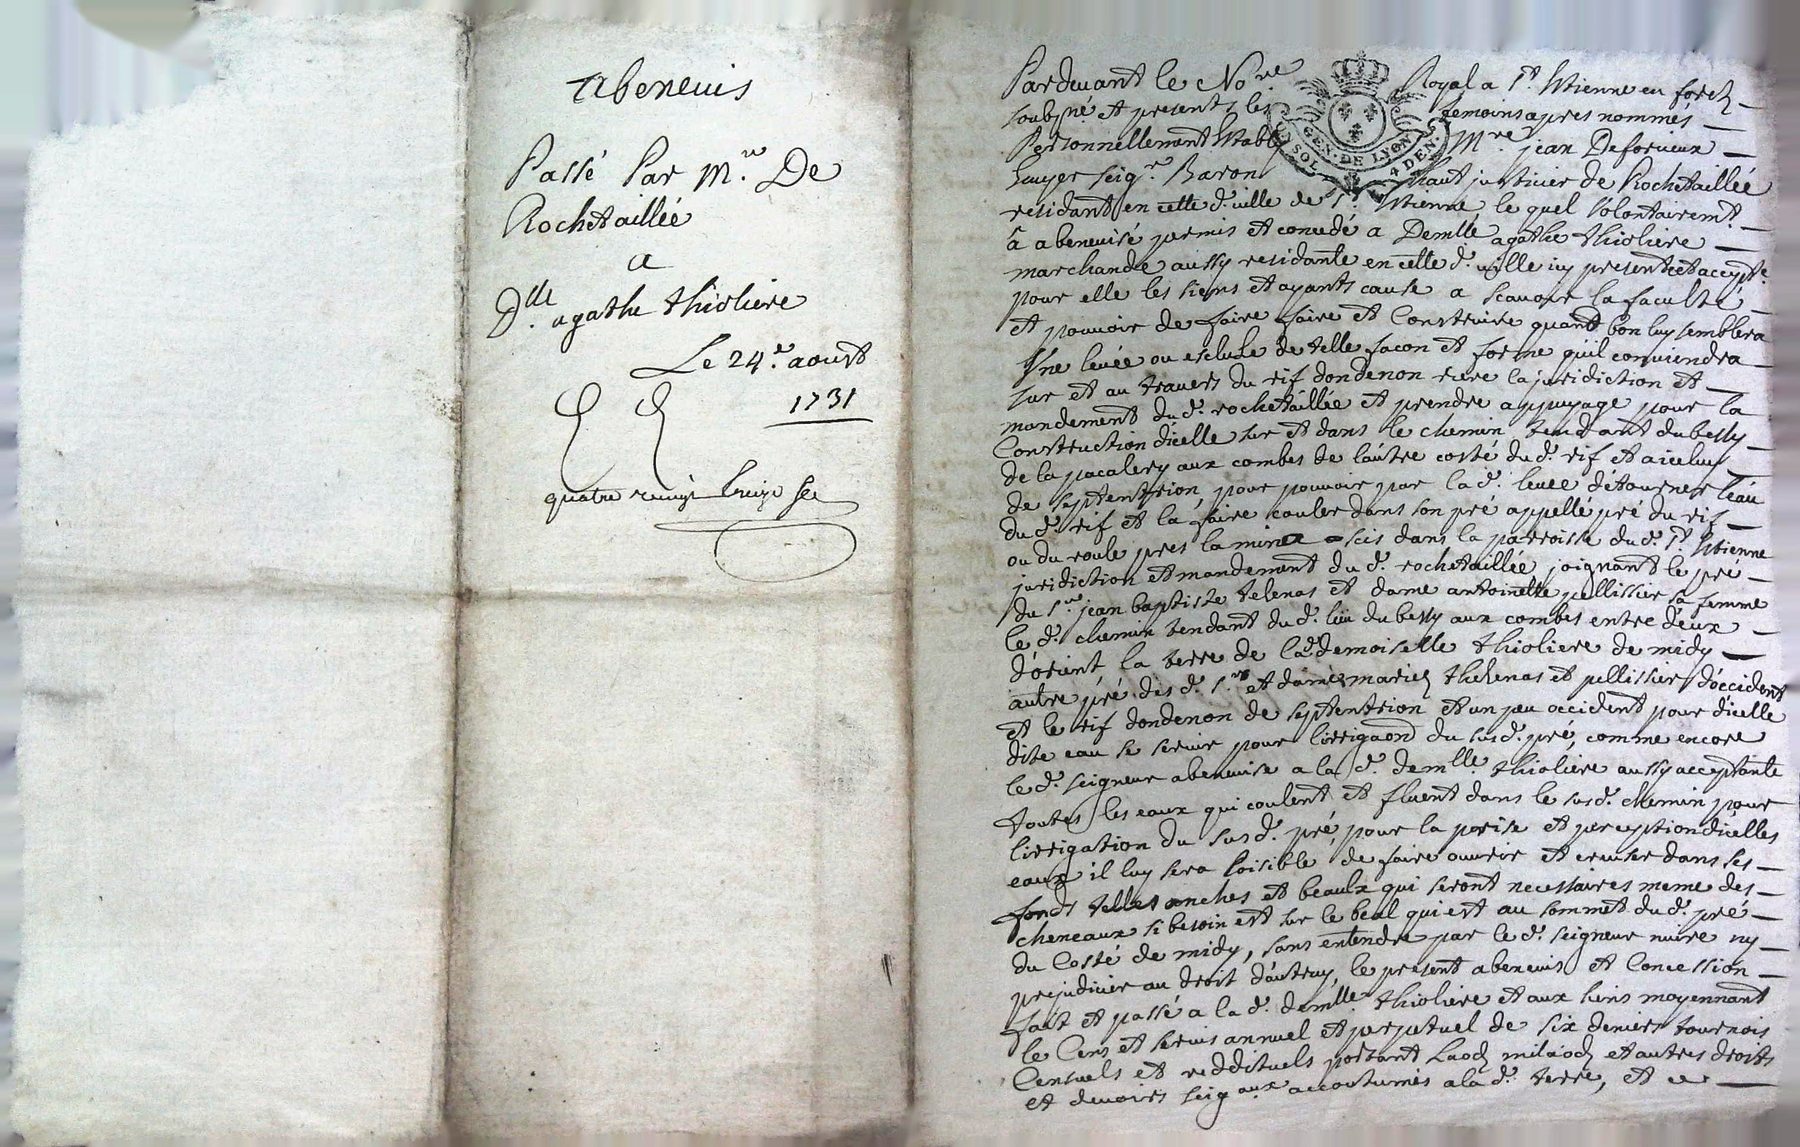 Abenevis
Passé Par Mre. De
Rochetaillée
a
Dlle. agathe thioliere
Le 24e. aoust
1731
quatre vingt treize
Pardevant le Nore Royal a St. Etienne en forez
soubsné et presents les temoins apres nommés
Personnellement Estably Mre jean Deforieux
Ecuyer seigr. Baron haut justicier de Rochetaillée
GEN. DE LYON
SOL 4 DEN.
residant en cette d. ville de St. Etienne le quel volontairemt.
â abenevisé permis et concedé a Demlle agathe thioliere
marchande aussy residante en cette d. ville icy presente et accepte.
pour elle les siens et ayants cause a scavoir la faculté
et pouvoir de faire faire et Construire quant bon luy semblera
Une levée ou escluse de telle facon et forme qu'il conviendra
sur et au travers du rif dondenon riere la juridiction et
mandement du d. rochetaillée et prendre appuyage pour la
Construction dicelle sur et dans le chemin tendant du bessy
de la pacalery aux combes de lautre costé du d. rif et a iceluy
de septentrion, pour pouvoir par la d. levée détourner l'eau
du d. rif et la faire couler dans son pré appellé pré du rif
ou du roule pres la mine scis dans la parroisse du d. St. Etienne
juridiction et mandement du d. rochetaillée joignant le pré
du sr. jean baptiste telenas et dame antoinette pellissier sa femme
le d. chemin tendant du d. lieu du bessy aux combes entre deux
d'orient la terre de la d. demoiselle thioliere de midy
autre pré des d. srs et dame mariez thelenas et pellissier d'occident
et le rif dondenon de septentrion et un peu occident pour dicelle
dite eau se servir pour lirrigaon du susd. pré, comme encore
le d. seigneur abenevise a la d. demlle. thioliere aussy acceptante
toutes les eaux qui coulent et fluent dans le susd. chemin pour
lirrigation du susd. pré, pour la prise et perception dicelles
eaux il luy sera loisible de faire ouvrir et creuser dans ses
fonds telles anches et bealx qui seront necessaires meme des
cheneaux si besoin est sur le beal qui est au sommet du d. pré
du Costé de midy, sans entendre par le d. seigneur nuire ny
prejudicier au droit d'autruy, le present abenevis et Concession
fait et passé a la d. demlle thioliere et aux siens moyennant
le Cens et servis annuel et perpetuel de six deniers tournois
Censuels et reddituels portant Laod milaod et autres droits
et devoirs seigaux accoutumés a la d. terre, et ce